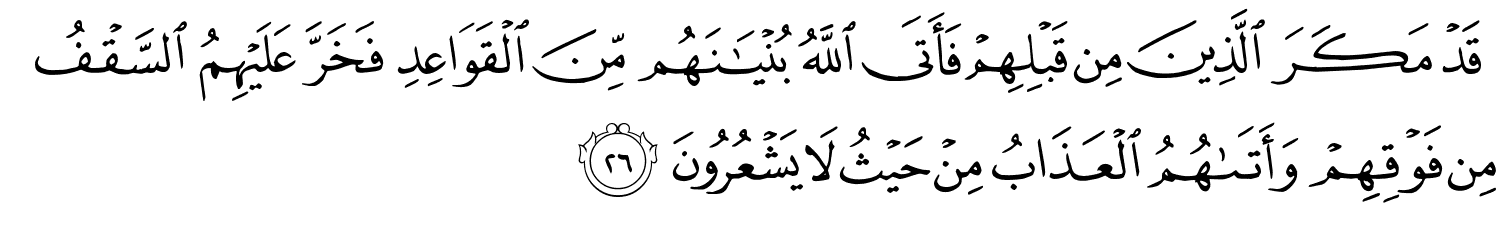 قَدۡ مَكَرَ ٱلَّذِينَ مِن قَبۡلِهِمۡ فَأَتَى ٱللَّهُ بُنۡيَٰنَهُم مِّنَ ٱلۡقَوَاعِدِ فَخَرَّ عَلَيۡهِمُ ٱلسَّقۡفُ
مِن فَوۡقِهِمۡ وَأَتَىٰهُمُ ٱلۡعَذَابُ مِنۡ حَيۡثُ لَا يَشۡعُرُونَ ٢٦